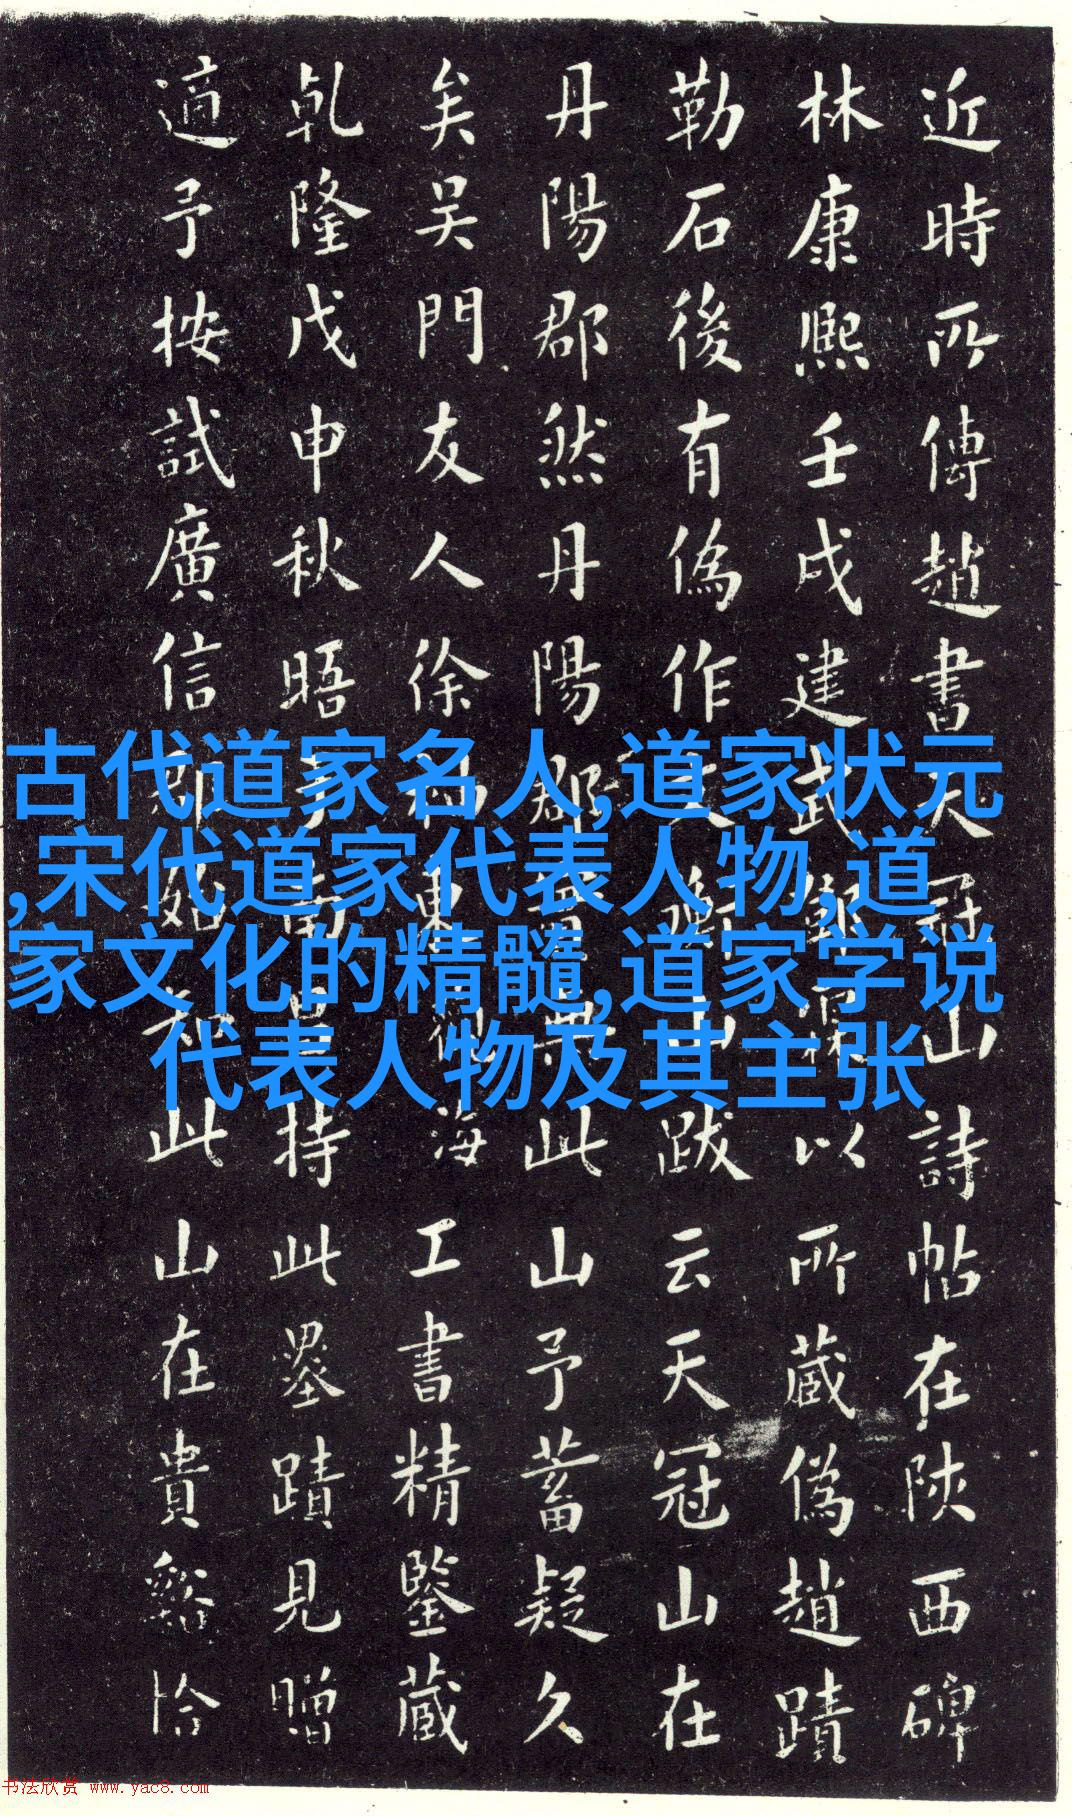 近時所傳趙書天冠山詩帖在陝西碑
林康熙壬戌建武以所藏偽趙蹟
勒石後有偽作山跋云天冠山在
丹陽郡然丹陽郡此山予蓄疑久
矣吴門友人徐東海工書精鑒藏
乾隆戊申秋晤南持此墨蹟見贈
適予按試廣信郡知此山在貴谿恰
古代道家名人,道家状元
,宋代道家代表人物,道
家文化的精髓,道家学说
代表人物及其主张
书法欣赏 www.yac8.com